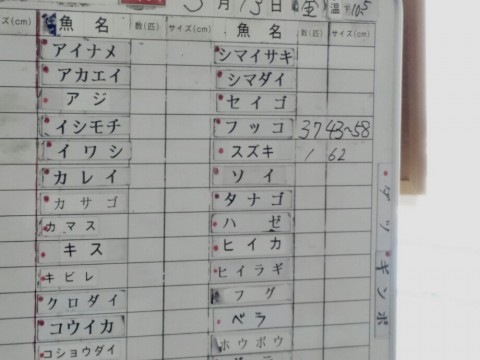 月13日(金) 温 10.5
サイズ(cm) 魚名 数(匹) サイズ(cm) 魚名 数(匹) サイズ(cm)
アイナメ シマイサキ
アカエイ シマダイ
アジ セイゴ
イシモチ フッコ 37 43~58
イワシ スズキ 1 62
カレイ ソイ
カサゴ タナゴ
カマス ハゼ
キス ヒイカ
キビレ ヒイラギ
クロダイ フグ
コウイカ ベラ
コショウダイ ホウボウ
ギンポ